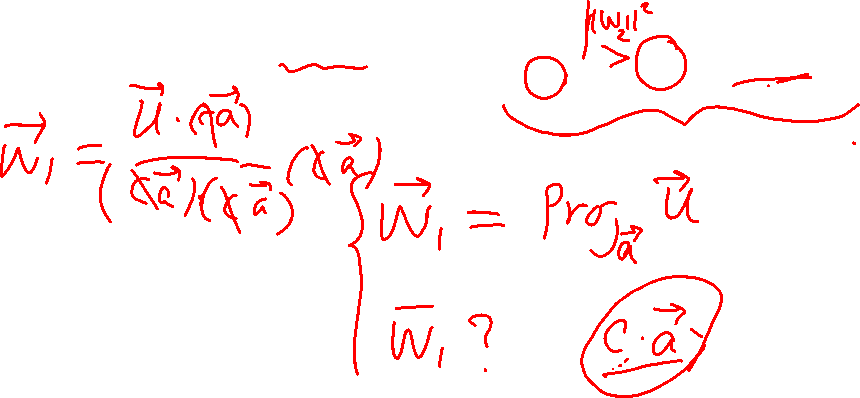 ‖W₂‖²
>
\vec{W}_1 = \frac{\vec{U} \cdot (\vec{a})}{(\vec{a})(\vec{a})} (\vec{a})
\vec{W}_1 = Proj_{\vec{a}} \vec{U}
\overline{W}_1 ?
C \cdot \vec{a}